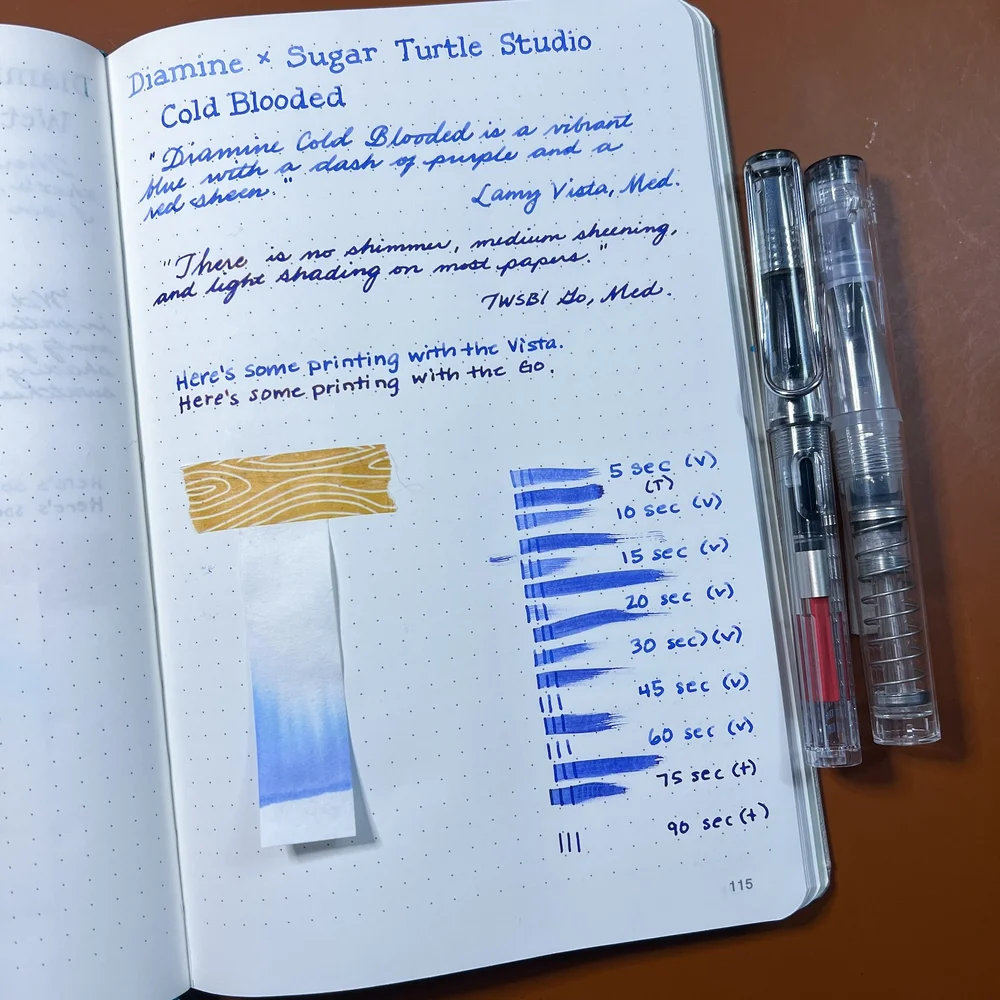 Diamine × Sugar Turtle Studio
Cold Blooded
"Diamine Cold Blooded is a vibrant
blue with a dash of purple and a
red sheen."
Lamy Vista, Med.
"There is no shimmer, medium sheening,
and light shading on most papers."
TWSBI Go, Med.
Here's some printing with the Vista.
Here's some printing with the Go.
5 sec (v)
(T)
10 sec (v)
15 sec (v)
20 sec (v)
30 sec) (v)
45 sec (v)
60 sec (v)
75 sec (t)
90 sec (t)
115